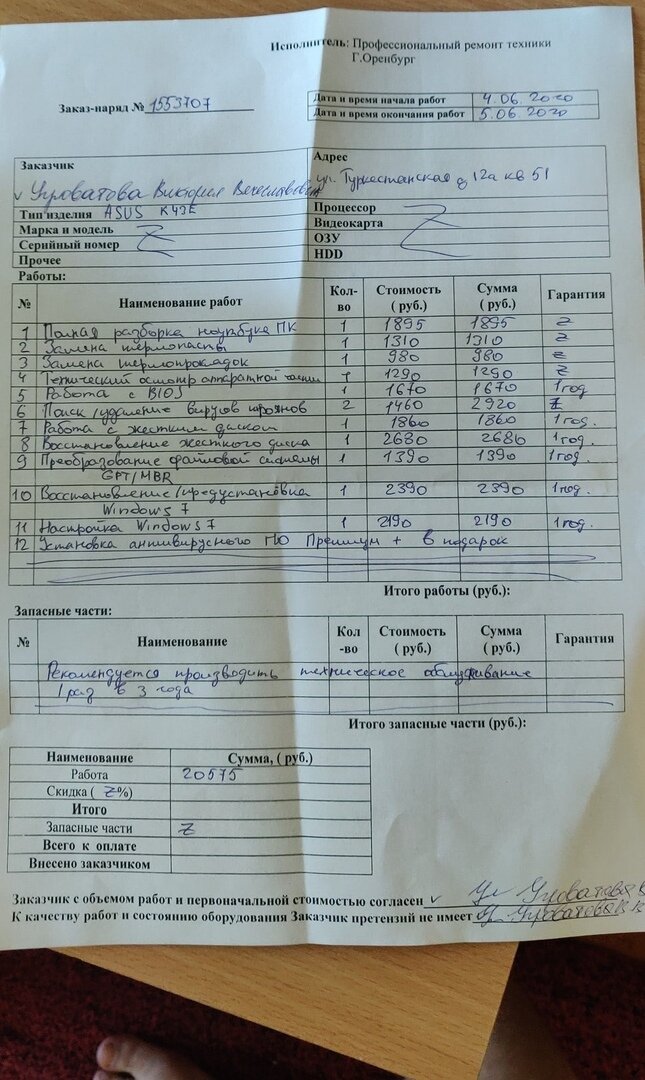 Исполнитель: Профессиональный ремонт техники
Г.Оренбург
Заказ-наряд № 1553707
Дата и время начала работ 4.06.2020
Дата и время окончания работ 5.06.2020
Заказчик
Адрес
Виктория ул. Туркестанская д 12а кв 51
Тип изделия ASUS K43E
Процессор
Марка и модель Z
Видеокарта Z
Серийный номер
ОЗУ
Прочее
HDD
Работы:
№ Наименование работ Кол-во Стоимость (руб.) Сумма (руб.) Гарантия
1 Полная разборка ноутбука ПК 1 1895 1895 Z
2 Замена термопасты 1 1310 1310 Z
3 Замена термопрокладок 1 980 980 Z
4 Технический осмотр аппаратной части 1 1290 1290 Z
5 Работа с BIOS 1 1670 1670 1 год
6 Поиск/удаление вирусов троянов 2 1460 2920 Z
7 Работа с жестким диском 1 1860 1860 1 год.
8 Восстановление жесткого диска 1 2680 2680 1 год.
9 Преобразование файловой системы 1 1390 1390 1 год.
GPT/MBR
10 Восстановление/предустановка 1 2390 2390 1 год.
Windows 7
11 Настройка Windows 7 1 2190 2190 1 год.
12 Установка антивирусного ПО Премиум + в подарок
Итого работы (руб.):
Запасные части:
№ Наименование Кол-во Стоимость (руб.) Сумма (руб.) Гарантия
Рекомендуется производить техническое обслуживание
1 раз в 3 года
Итого запасные части (руб.):
Наименование Сумма, ( руб.)
Работа 20575
Скидка ( Z %)
Итого
Запасные части Z
Всего к оплате
Внесено заказчиком
Заказчик с объемом работ и первоначальной стоимостью согласен
К качеству работ и состоянию оборудования Заказчик претензий не имеет